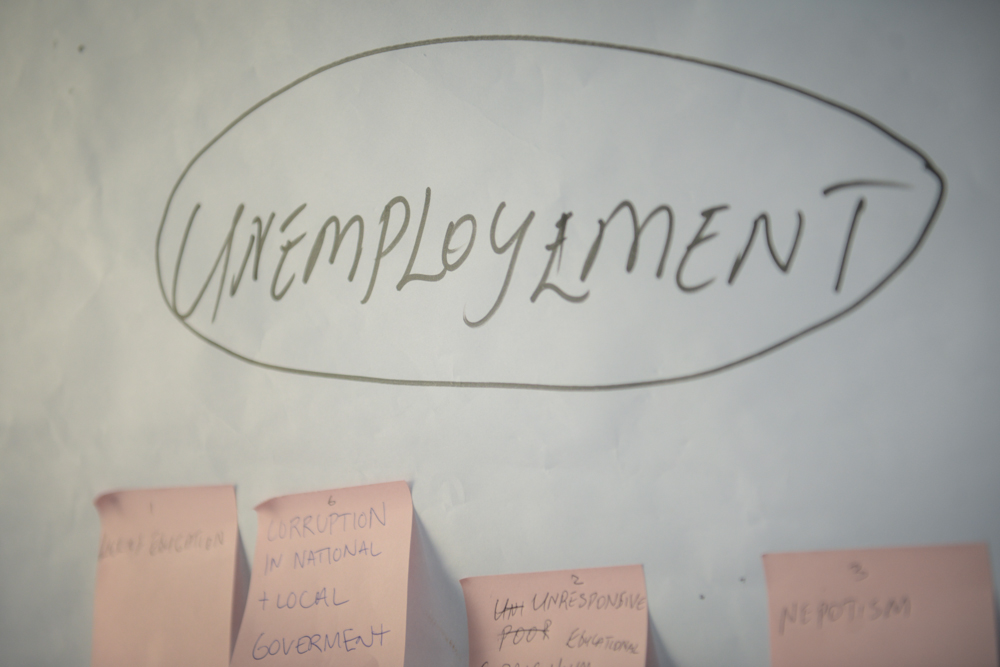 UNEMPLOYEMENT
1
EDUCATION
6
CORRUPTION
IN NATIONAL
+ LOCAL
GOVERMENT
2
UNRESPONSIVE
POOR EDUCATIONAL
3
NEPOTISM